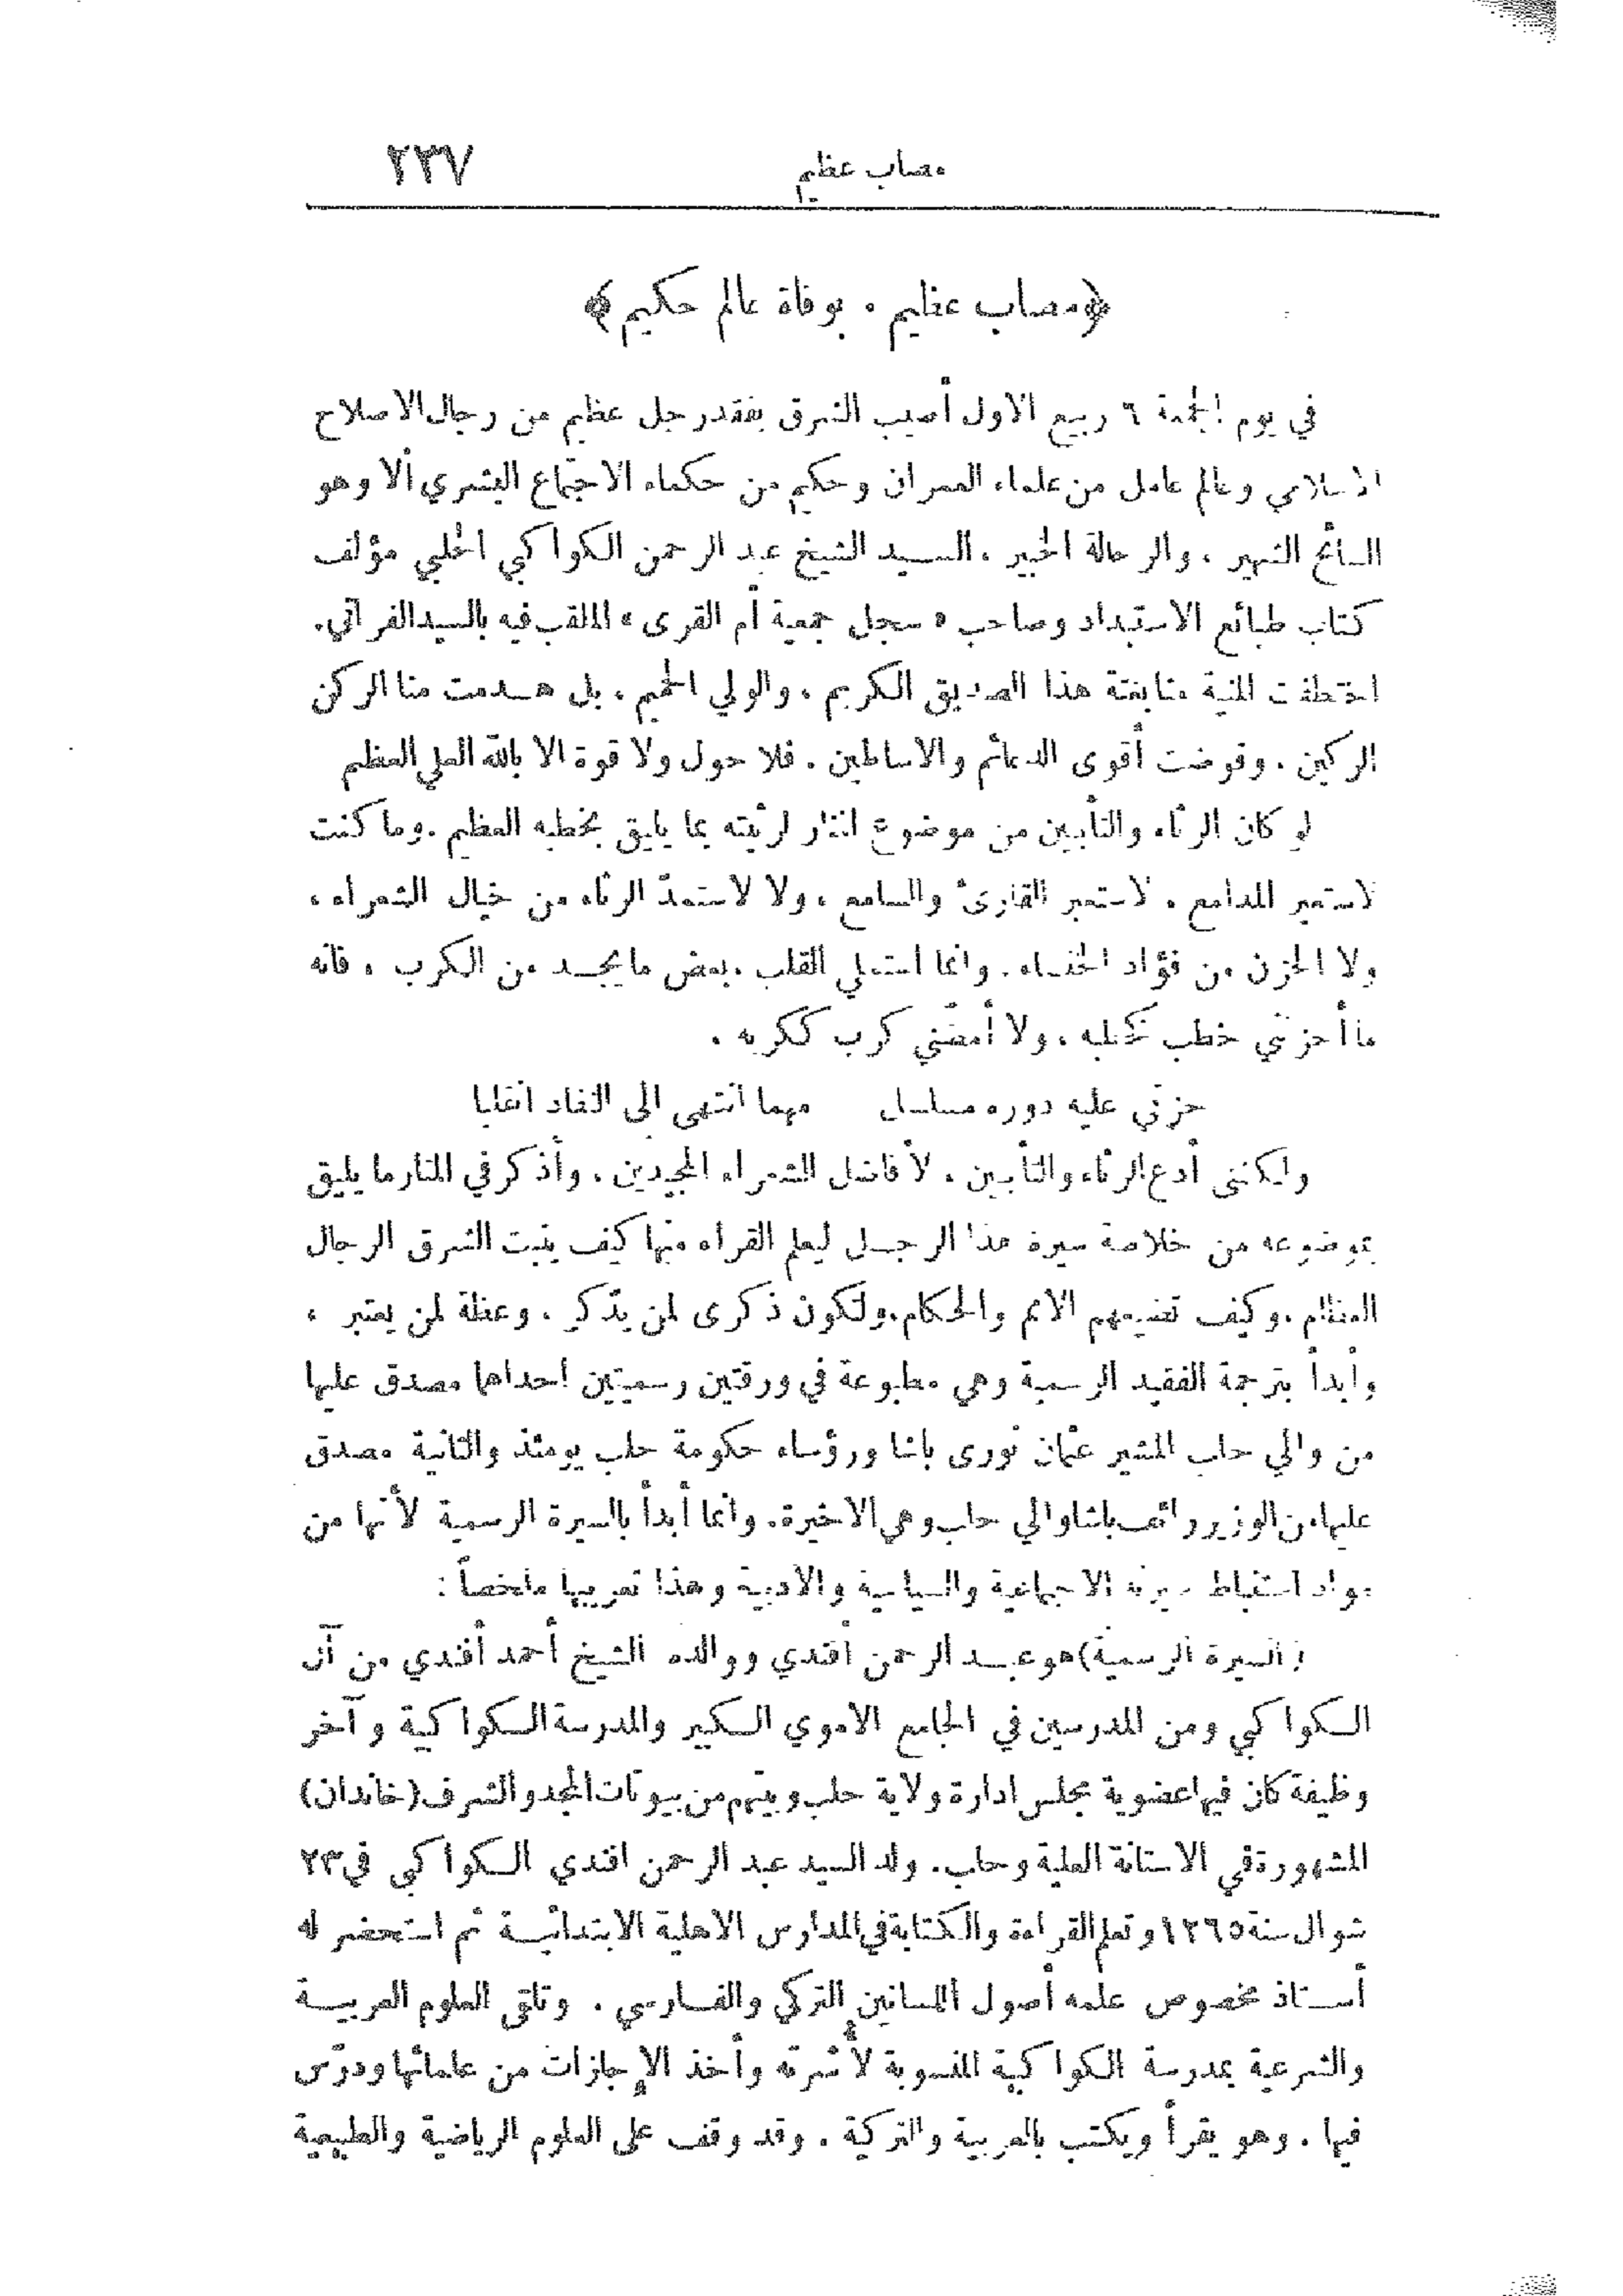 مصاب عظيم
٢٣٧
﴿مصاب عظيم ، بوفاة عالم حكيم﴾
في يوم الجمعة ٦ ربيع الاول أصيب الشرق بفقد رجل عظيم من رجال الاصلاح
الاسلامي وعالم عامل من علماء العمران وحكيم من حكماء الاجتماع البشري ألا وهو
السائح الشهير ، والرحالة الخبير ، السيد الشيخ عبد الرحمن الكواكبي الحلبي مؤلف
كتاب طبائع الاستبداد وصاحب « سجل جمعية أم القرى » الملقب فيه بالسيد الفراتي .
اختطفت المنية منا بغتة هذا الصديق الكريم ، والولي الحميم ، بل هدمت منا الركن
الركين . وقوضت أقوى الدعائم والاساطين . فلا حول ولا قوة الا بالله العلي العظيم
لو كان الرثاء والتأبين من موضوع المنار لرثيته بما يليق بخطبه العظيم . وما كنت
لاستعير المدامع ، لاستعبر القارئ والسامع ، ولا لاستمدّ الرثاء من خيال الشعراء ،
ولا الحزن من فؤاد الخنساء . وانما استملي القلب ، بعض ما يجد من الكرب ، فانه
ما أحزنني خطب كخطبه ، ولا أمضّني كرب ككربه .
حزني عليه دوره مسلسل مهما انتهى الى النفاد انقلبا
ولكنني أدع الرثاء والتأبين ، لأفاضل الشعراء المجيدين . وأذكر في المنار ما يليق
بموضوعه من خلاصة سيرة هذا الرجل ليعلم القراء منها كيف ينبت الشرق الرجال
العظام . وكيف تضيعهم الامم والحكام . ولتكون ذكرى لمن يدّكر ، وعظة لمن يعتبر ،
وأبدأ بترجمة الفقيد الرسمية وهي مطبوعة في ورقتين رسميتين احداهما مصدق عليها
من والي حلب المشير عثمان نوري باشا ورؤساء حكومة حلب يومئذ والثانية مصدق
عليها من الوزير رائف باشا والي حلب وهي الاخيرة . وانما أبدأ بالسيرة الرسمية لأنها من
مواد استنباط سيرته الاجتماعية والسياسية والادبية وهذا تعريبها ملخصاً :
( السيرة الرسمية ) هو عبد الرحمن أفندي ووالده الشيخ أحمد أفندي من آل
الكواكبي ومن المدرسين في الجامع الاموي الكبير والمدرسة الكواكبية وآخر
وظيفة كان فيها عضوية مجلس ادارة ولاية حلب وبيتهم من بيوتات المجد والشرف (خاندان)
المشهورة في الاستانة العلية وحلب . ولد السيد عبد الرحمن افندي الكواكبي في ٢٣
شوال سنة ١٢٦٥ وتعلم القراءة والكتابة في المدارس الاهلية الابتدائية ثم استحضر له
أستاذ مخصوص علمه أصول اللسانين التركي والفارسي . وتلقى العلوم العربية
والشرعية بمدرسة الكواكبية المنسوبة لأسرته وأخذ الإجازات من علمائها ودرّس
فيها . وهو يقرأ ويكتب بالعربية والتركية . وقد وقف على العلوم الرياضية والطبيعية